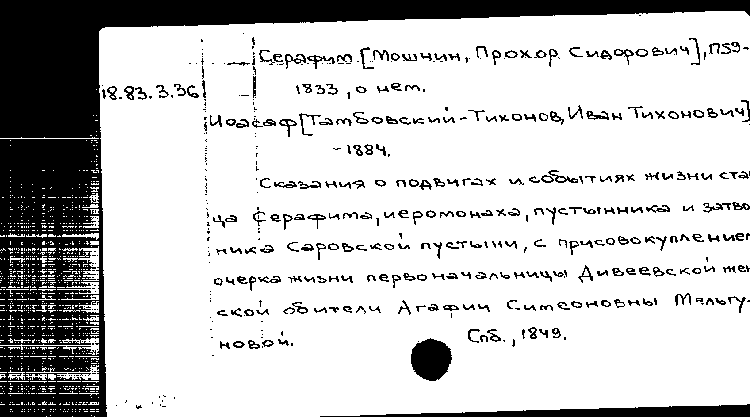 Серафим [Мошнин, Прохор Сидорович], 1759-
18.83.3.36
1833, о нем.
Иоасаф [Тамбовский-Тихонов, Иван Тихонович]
-1884.
Сказания о подвигах и событиях жизни стар
ца Серафима, иеромонаха, пустынника и затво
ника Саровской пустыни, с присовокуплением
очерка жизни первоначальницы Дивеевской жен
ской обители Агафии Симеоновны Мельгу-
новой. Спб., 1849.